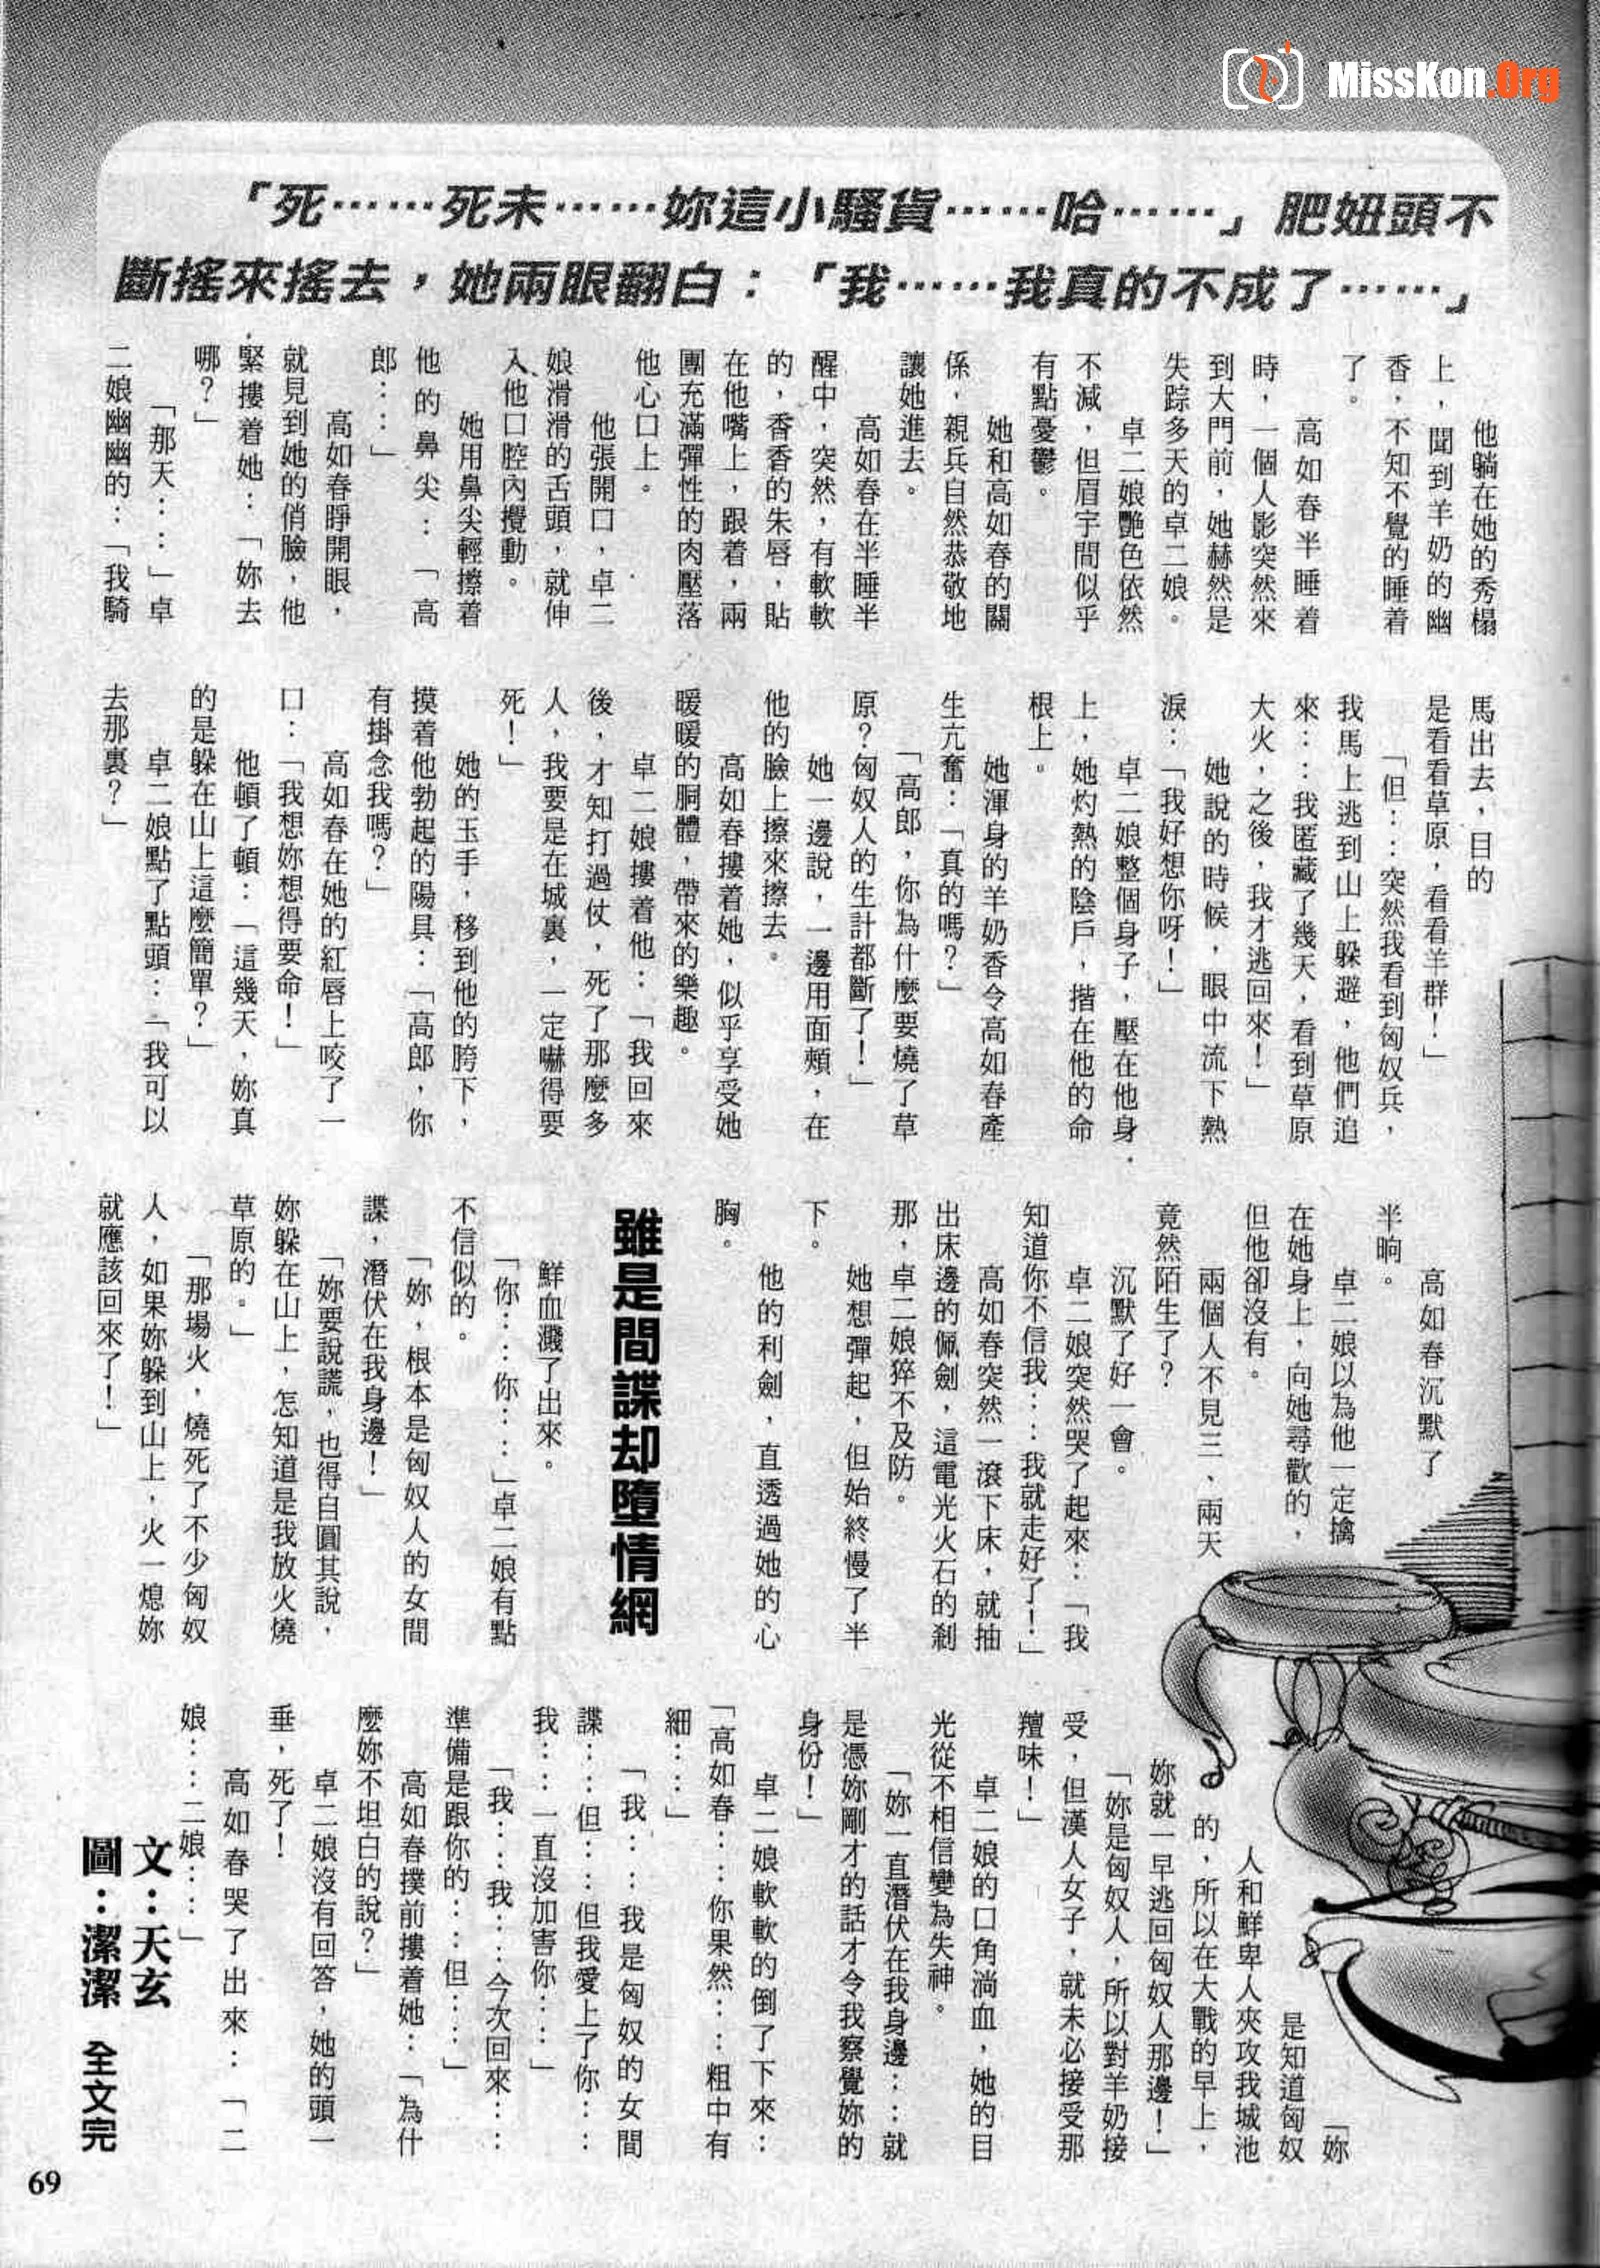 MissKon.Org
「死……死未……妳這小騷貨……哈……」肥妞頭不
斷搖來搖去，她兩眼翻白：「我……我真的不成了……」
他躺在她的秀榻
上，聞到羊奶的幽
香，不知不覺的睡着
了。
高如春半睡着
時，一個人影突然來
到大門前，她赫然是
失踪多天的卓二娘。
卓二娘艷色依然
不減，但眉宇間似乎
有點憂鬱。
她和高如春的關
係，親兵自然恭敬地
讓她進去。
高如春在半睡半
醒中，突然，有軟軟
的，香香的朱唇，貼
在他嘴上，跟着，兩
團充滿彈性的肉壓落
他心口上。
他張開口，卓二
娘滑滑的舌頭，就伸
入他口腔內攪動。
她用鼻尖輕擦着
他的鼻尖：「高
郎…」
高如春睜開眼，
就見到她的俏臉，他
緊摟着她：「妳去
哪？」
「那天…」卓
二娘幽幽的：「我騎
馬出去，目的
是看看草原，看看羊群！」
「但…突然我看到匈奴兵，
我馬上逃到山上躲避，他們追
來…我匿藏了幾天，看到草原
大火，之後，我才逃回來！」
她說的時候，眼中流下熱
淚：「我好想你呀！」
卓二娘整個身子，壓在他身
上，她灼熱的陰戶，揩在他的命
根上。
她渾身的羊奶香令高如春產
生亢奮：「真的嗎？」
「高郎，你為什麼要燒了草
原？匈奴人的生計都斷了！」
她一邊說，一邊用面頰，在
他的臉上擦來擦去。
高如春摟着她，似乎享受她
暖暖的胴體，帶來的樂趣。
卓二娘摟着他：「我回來
後，才知打過仗，死了那麼多
人，我要是在城裏，一定嚇得要
死！」
她的玉手，移到他的胯下，
摸着他勃起的陽具：「高郎，你
有掛念我嗎？」
高如春在她的紅唇上咬了一
口：「我想妳想得要命！」
他頓了頓：「這幾天，妳真
的是躲在山上這麼簡單？」
卓二娘點了點頭：「我可以
去那裏？」
高如春沉默了
半晌。
卓二娘以為他一定擒
在她身上，向她尋歡的，
但他卻沒有。
兩個人不見三、兩天
竟然陌生了？
沉默了好一會。
卓二娘突然哭了起來：「我
知道你不信我…我就走好了！」
高如春突然一滾下床，就抽
出床邊的佩劍，這電光火石的剎
那，卓二娘猝不及防。
她想彈起，但始終慢了半
下。
他的利劍，直透過她的心
胸。
雖是間諜却墮情網
鮮血濺了出來。
「你…你…」卓二娘有點
不信似的。
「妳，根本是匈奴人的女間
諜，潛伏在我身邊！」
「妳要說謊，也得自圓其說，
妳躲在山上，怎知道是我放火燒
草原的。」
「那場火，燒死了不少匈奴
人，如果妳躲到山上，火一熄妳
就應該回來了！」
「妳
是知道匈奴
人和鮮卑人夾攻我城池
的，所以在大戰的早上，
妳就一早逃回匈奴人那邊！」
「妳是匈奴人，所以對羊奶接
受，但漢人女子，就未必接受那
羶味！」
卓二娘的口角淌血，她的目
光從不相信變為失神。
「妳一直潛伏在我身邊…就
是憑妳剛才的話才令我察覺妳的
身份！」
卓二娘軟軟的倒了下來：
「高如春…你果然…粗中有
細…」
「我…我是匈奴的女間
諜…但…但我愛上了你…
我…一直沒加害你…」
「我…我…今次回來…
準備是跟你的…但…」
高如春撲前摟着她：「為什
麼妳不坦白的說？」
卓二娘沒有回答，她的頭一
垂，死了！
高如春哭了出來：「二
娘…二娘…」
文：天玄
圖：潔潔 全文完
69